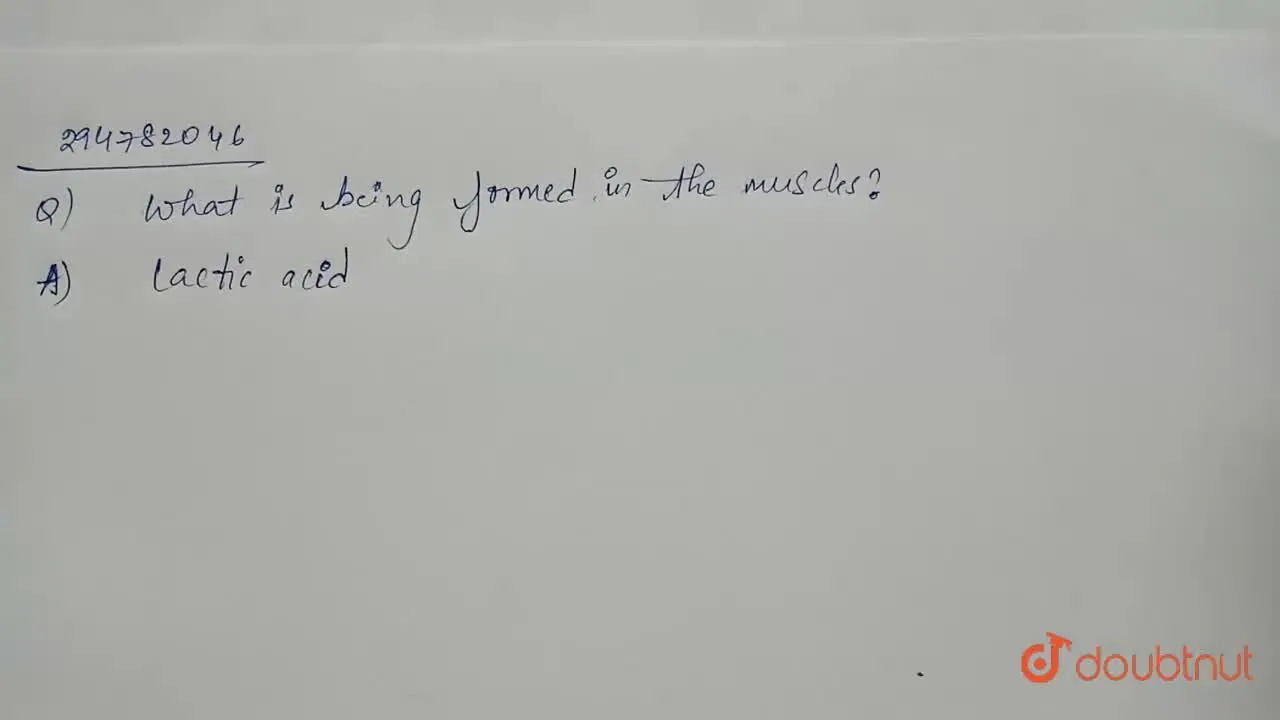 294782046
Q) What is being formed in the muscles?
A) Lactic acid
doubtnut